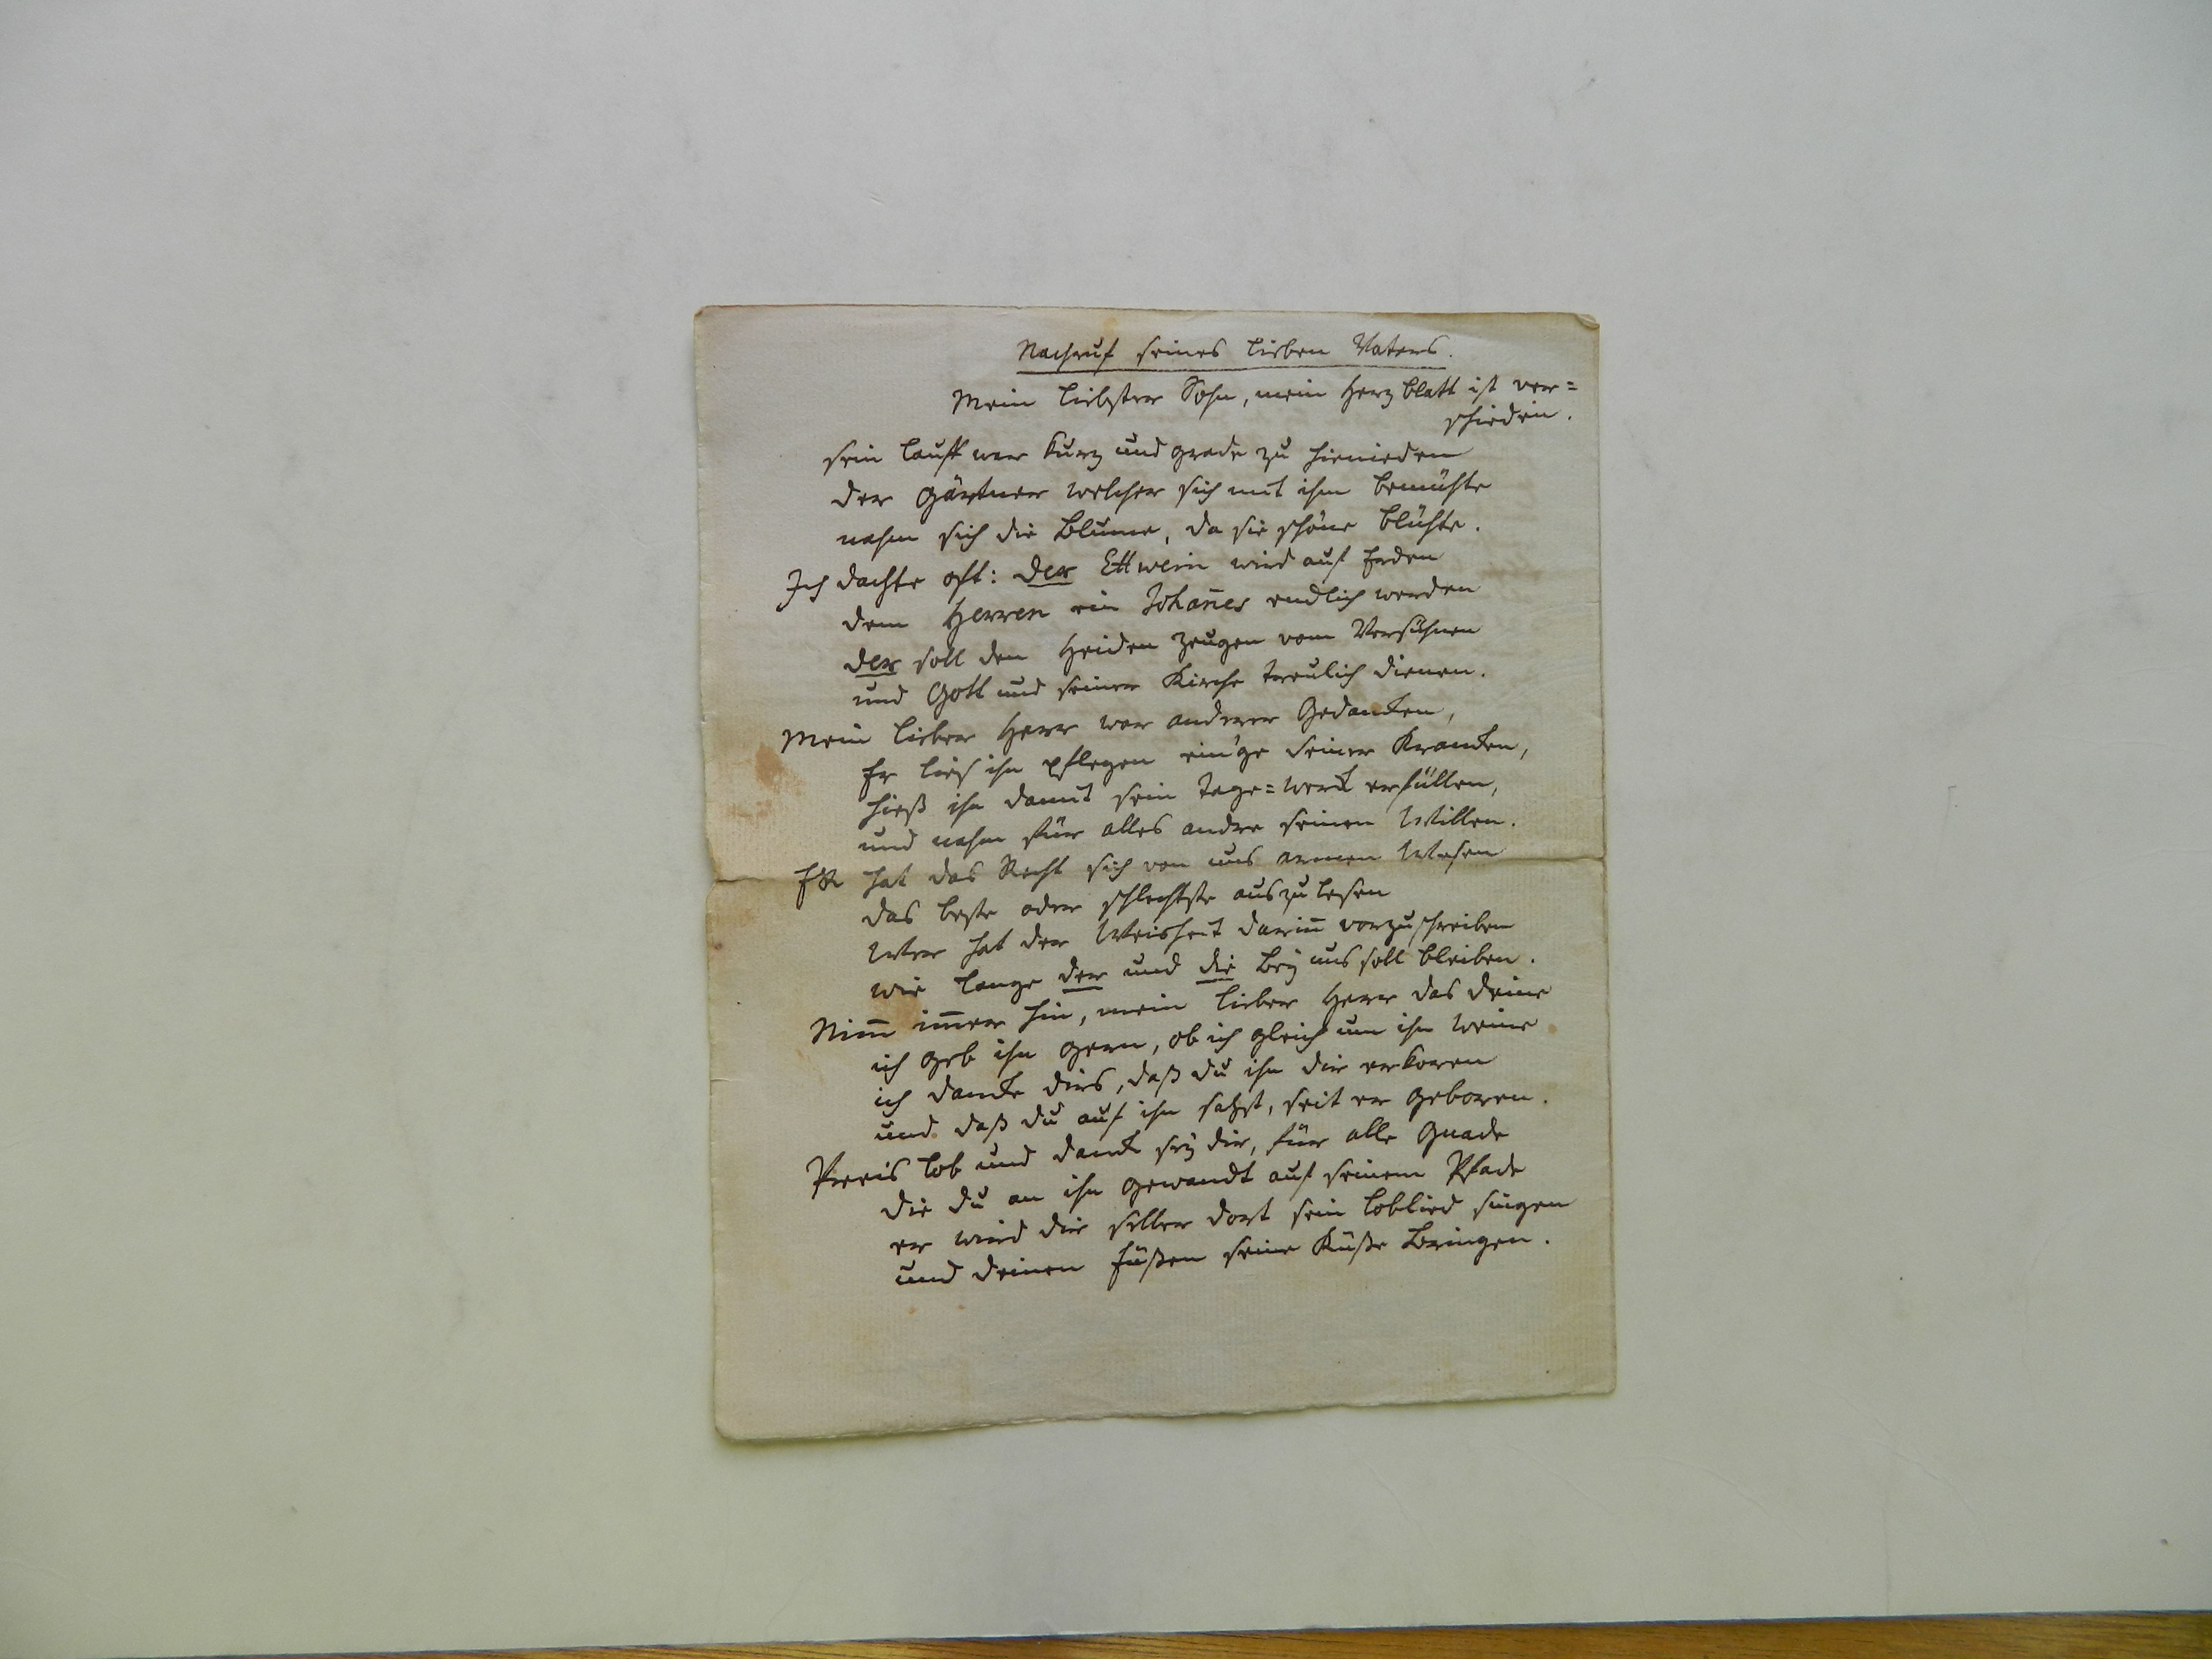 Nachruf seines lieben Vaters.
Mein liebster Sohn, mein Herzblatt ist ver=
schieden.
sein lauff war kurz und grade zu hienieden
der Gärtner welcher sich mit ihm bemühte
nahm sich die Blume, da sie schöne blühte.
Ich dachte oft: der Ettwein wird auf Erden
dem Herren ein Johan̄es endlich werden
der soll den Heiden zeugen vom Versühnen
und Gott und seiner Kirche treulich dienen.
Mein lieber Herr war anderer Gedanken,
Er ließ ihn pflegen ein'ge seiner Kranken,
hieß ihn damit sein Tage=werk erfüllen,
und nahm für alles andre seinen Willen.
Er hat das Recht sich von uns armen Wesen
das beste oder schlechtste auszulesen
Wer hat der Weisheit darin̄ vorzuschreiben
wie lange der und die bey uns soll bleiben.
Nim̄ im̄er hin, mein lieber Herr das deine
ich geb ihn gern, ob ich gleich um ihn weine
ich danke dirs, daß du ihn dir erkoren
und daß du auf ihn sahst, seit er geboren.
Preis lob und dank sey dir, für alle Gnade
die du an ihn gewandt auf seinem Pfade
er wird dir selber dort sein loblied singen
und deinen füßen seine Küße bringen.